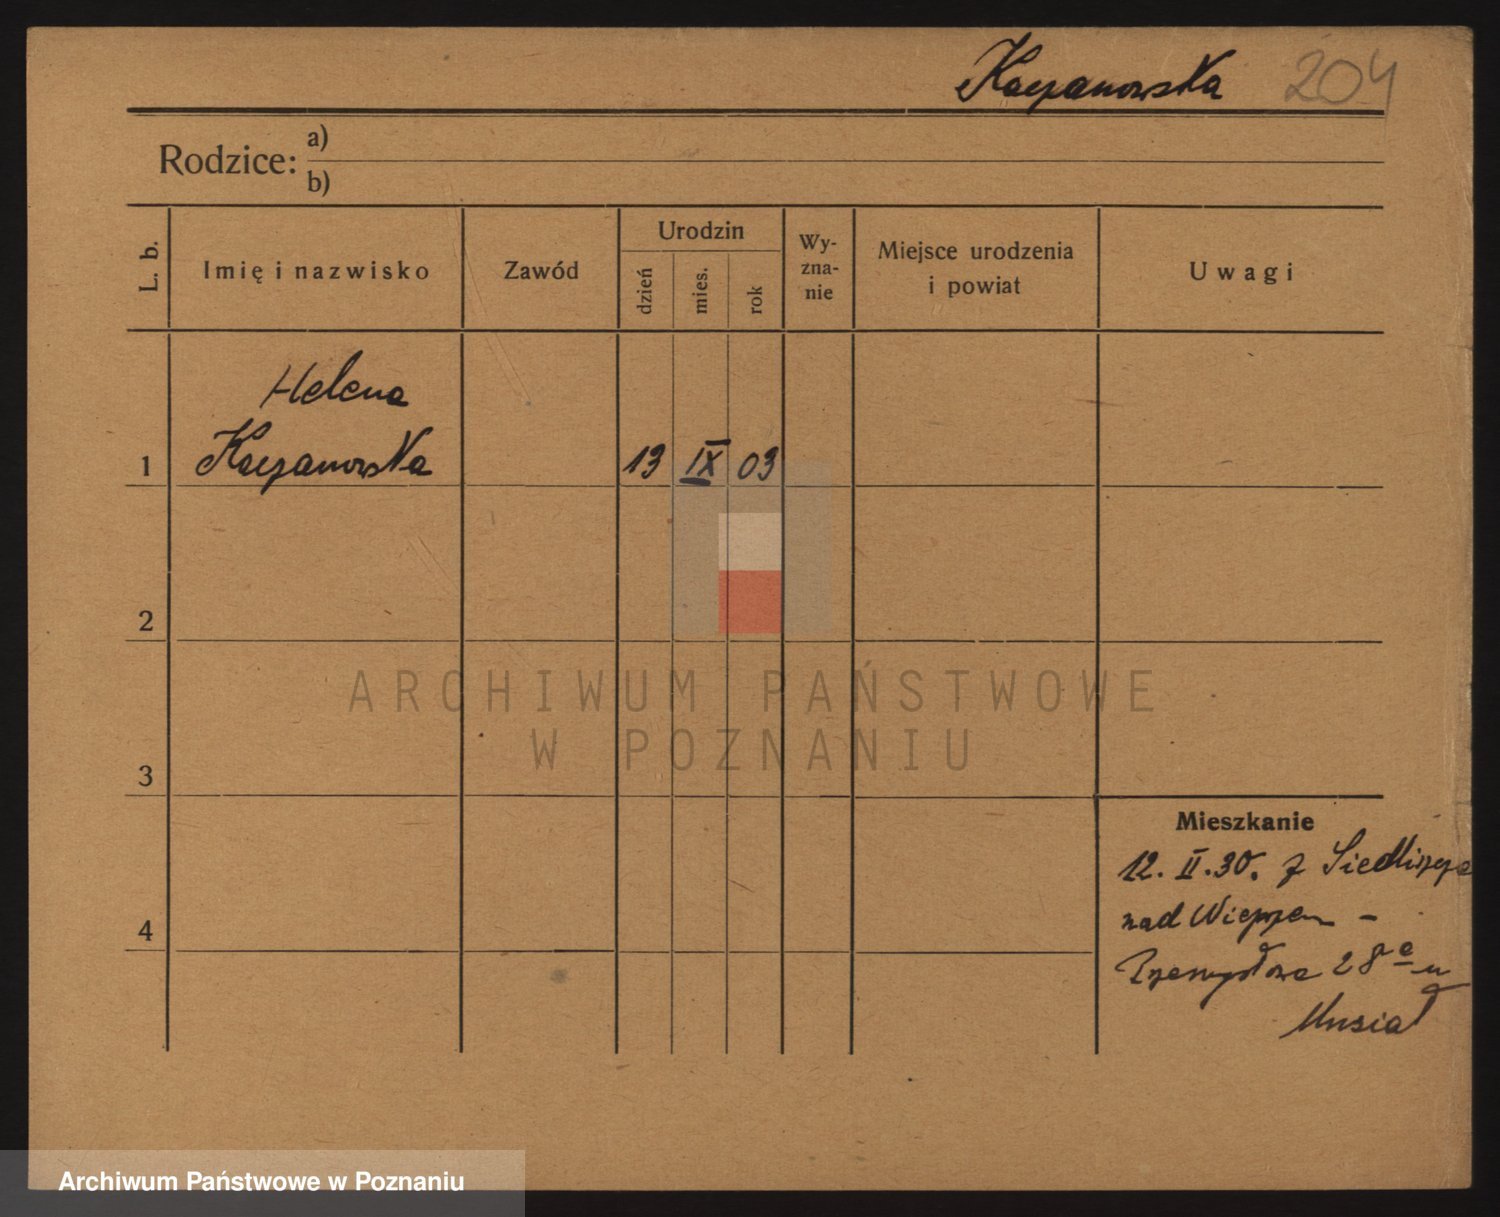 Kaczanowska 204
Rodzice: a)
b)
L. b.
Imię i nazwisko
Zawód
Urodzin
dzień
mies.
rok
Wy-
zna-
nie
Miejsce urodzenia
i powiat
Uwagi
Helena
1 Kaczanowska 13 IX 03
2
ARCHIWUM PAŃSTWOWE
W POZNANIU
3
4
Mieszkanie
12. II. 30. z Siedliszcza
nad Wieprzem -
Przemysłowa 28 u
Musiał
Archiwum Państwowe w Poznaniu